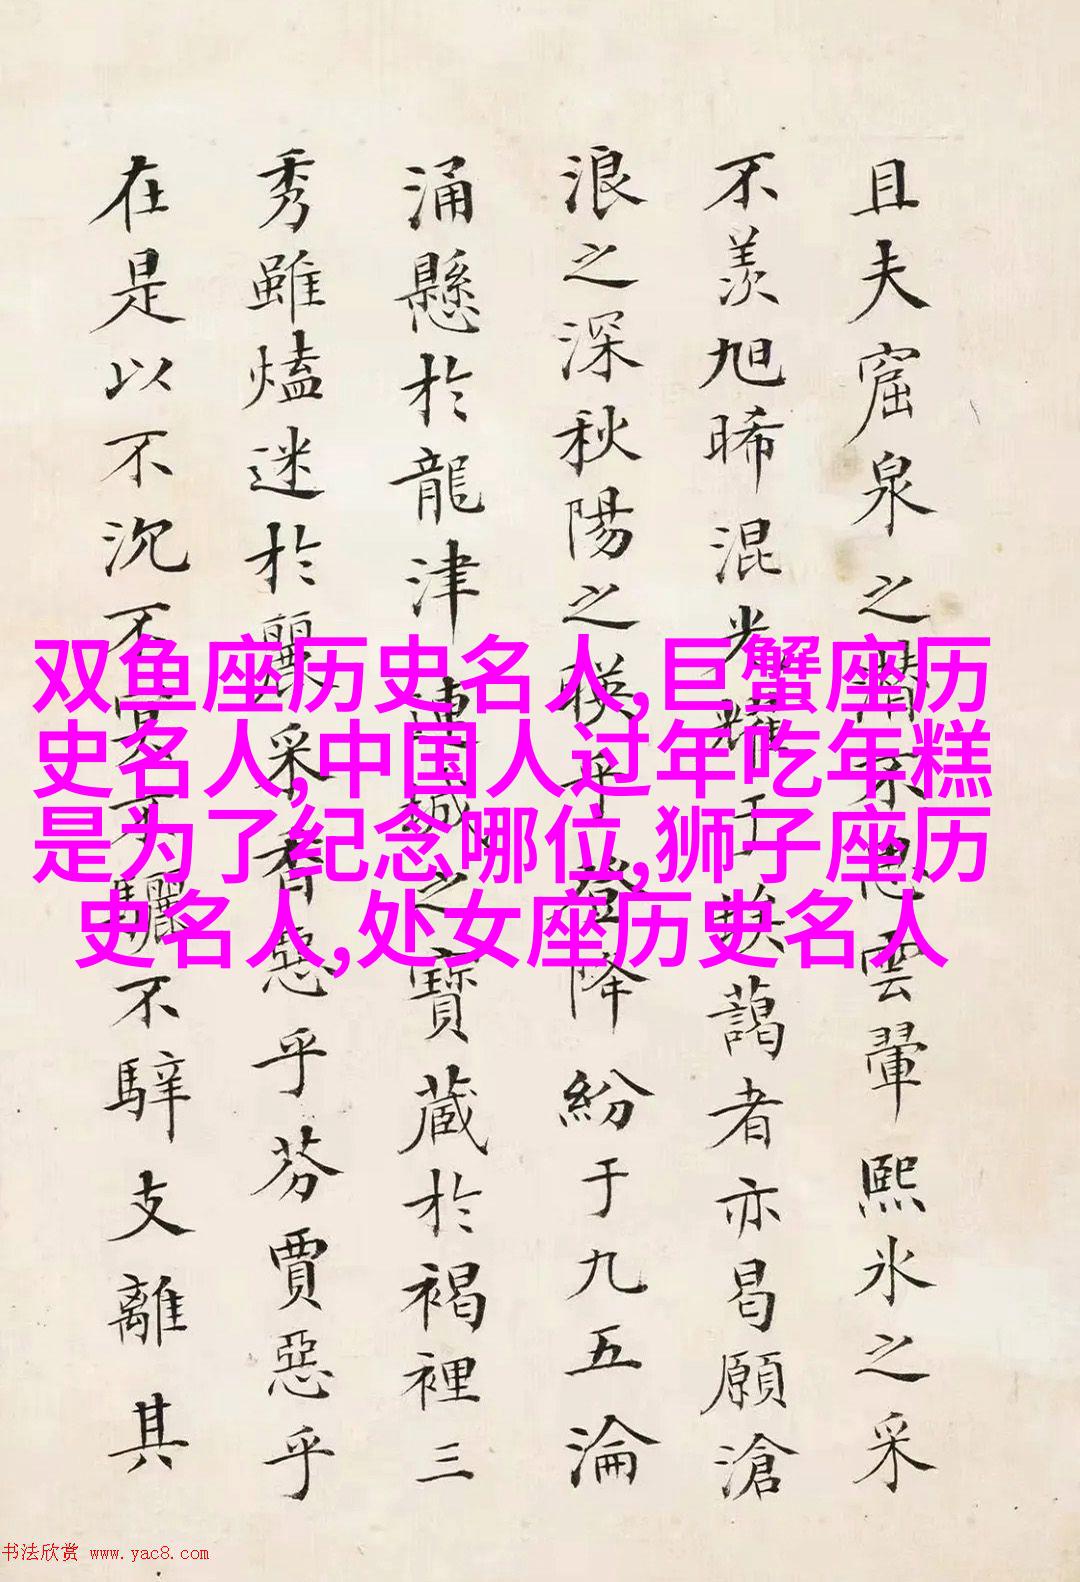 且夫窟泉之潜不思雲翬熙氷之采
不羡旭晞混光耀于扶藹者亦曷願滄
浪之深秋陽之暎乎登降紛于九五淪
涌懸於龍津連城之寶蔵於褐裡三
秀雖熆迷於麗采香惡乎芬賈惡乎
在是以不沉不冥不驪不騂支離其
双鱼座历史名人,巨蟹座历
史名人,中国人过年吃年糕
是为了纪念哪位,狮子座历
史名人,处女座历史名人
书法欣赏 www.yac8.com